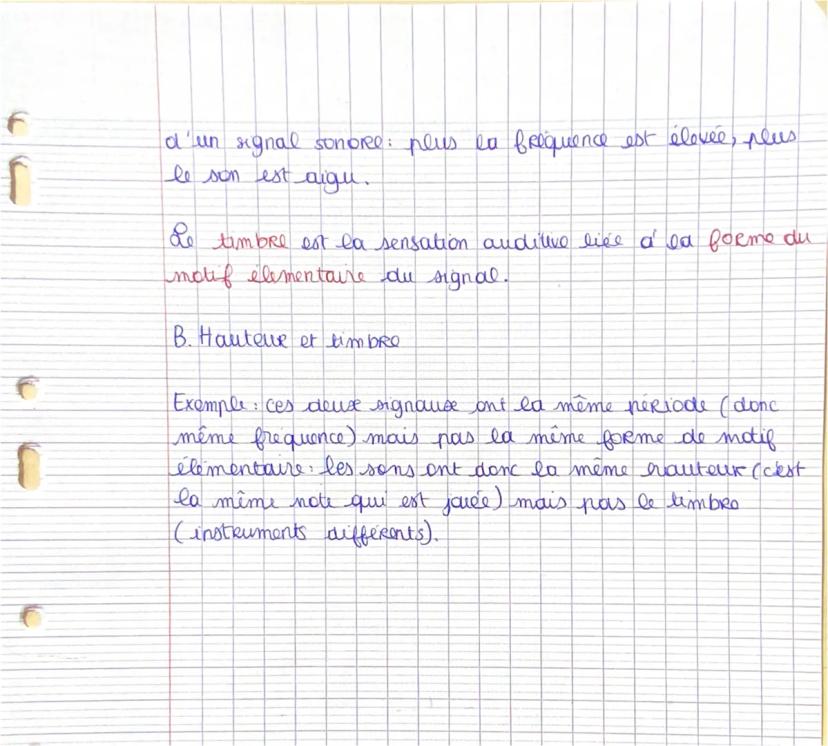 d'un signal sonore: plus la fréquence est élevée, plus
le son est aigu.
Le timbre est la sensation auditive liée à la forme du
motif élémentaire du signal.
B. Hauteur et timbre
Exemple: ces deux signaux ont la même période (donc
même fréquence) mais pas la même forme de motif
élémentaire: les sons ont donc la même hauteur (c'est
la même note qui est jouée) mais pas le timbre
(instruments différents).